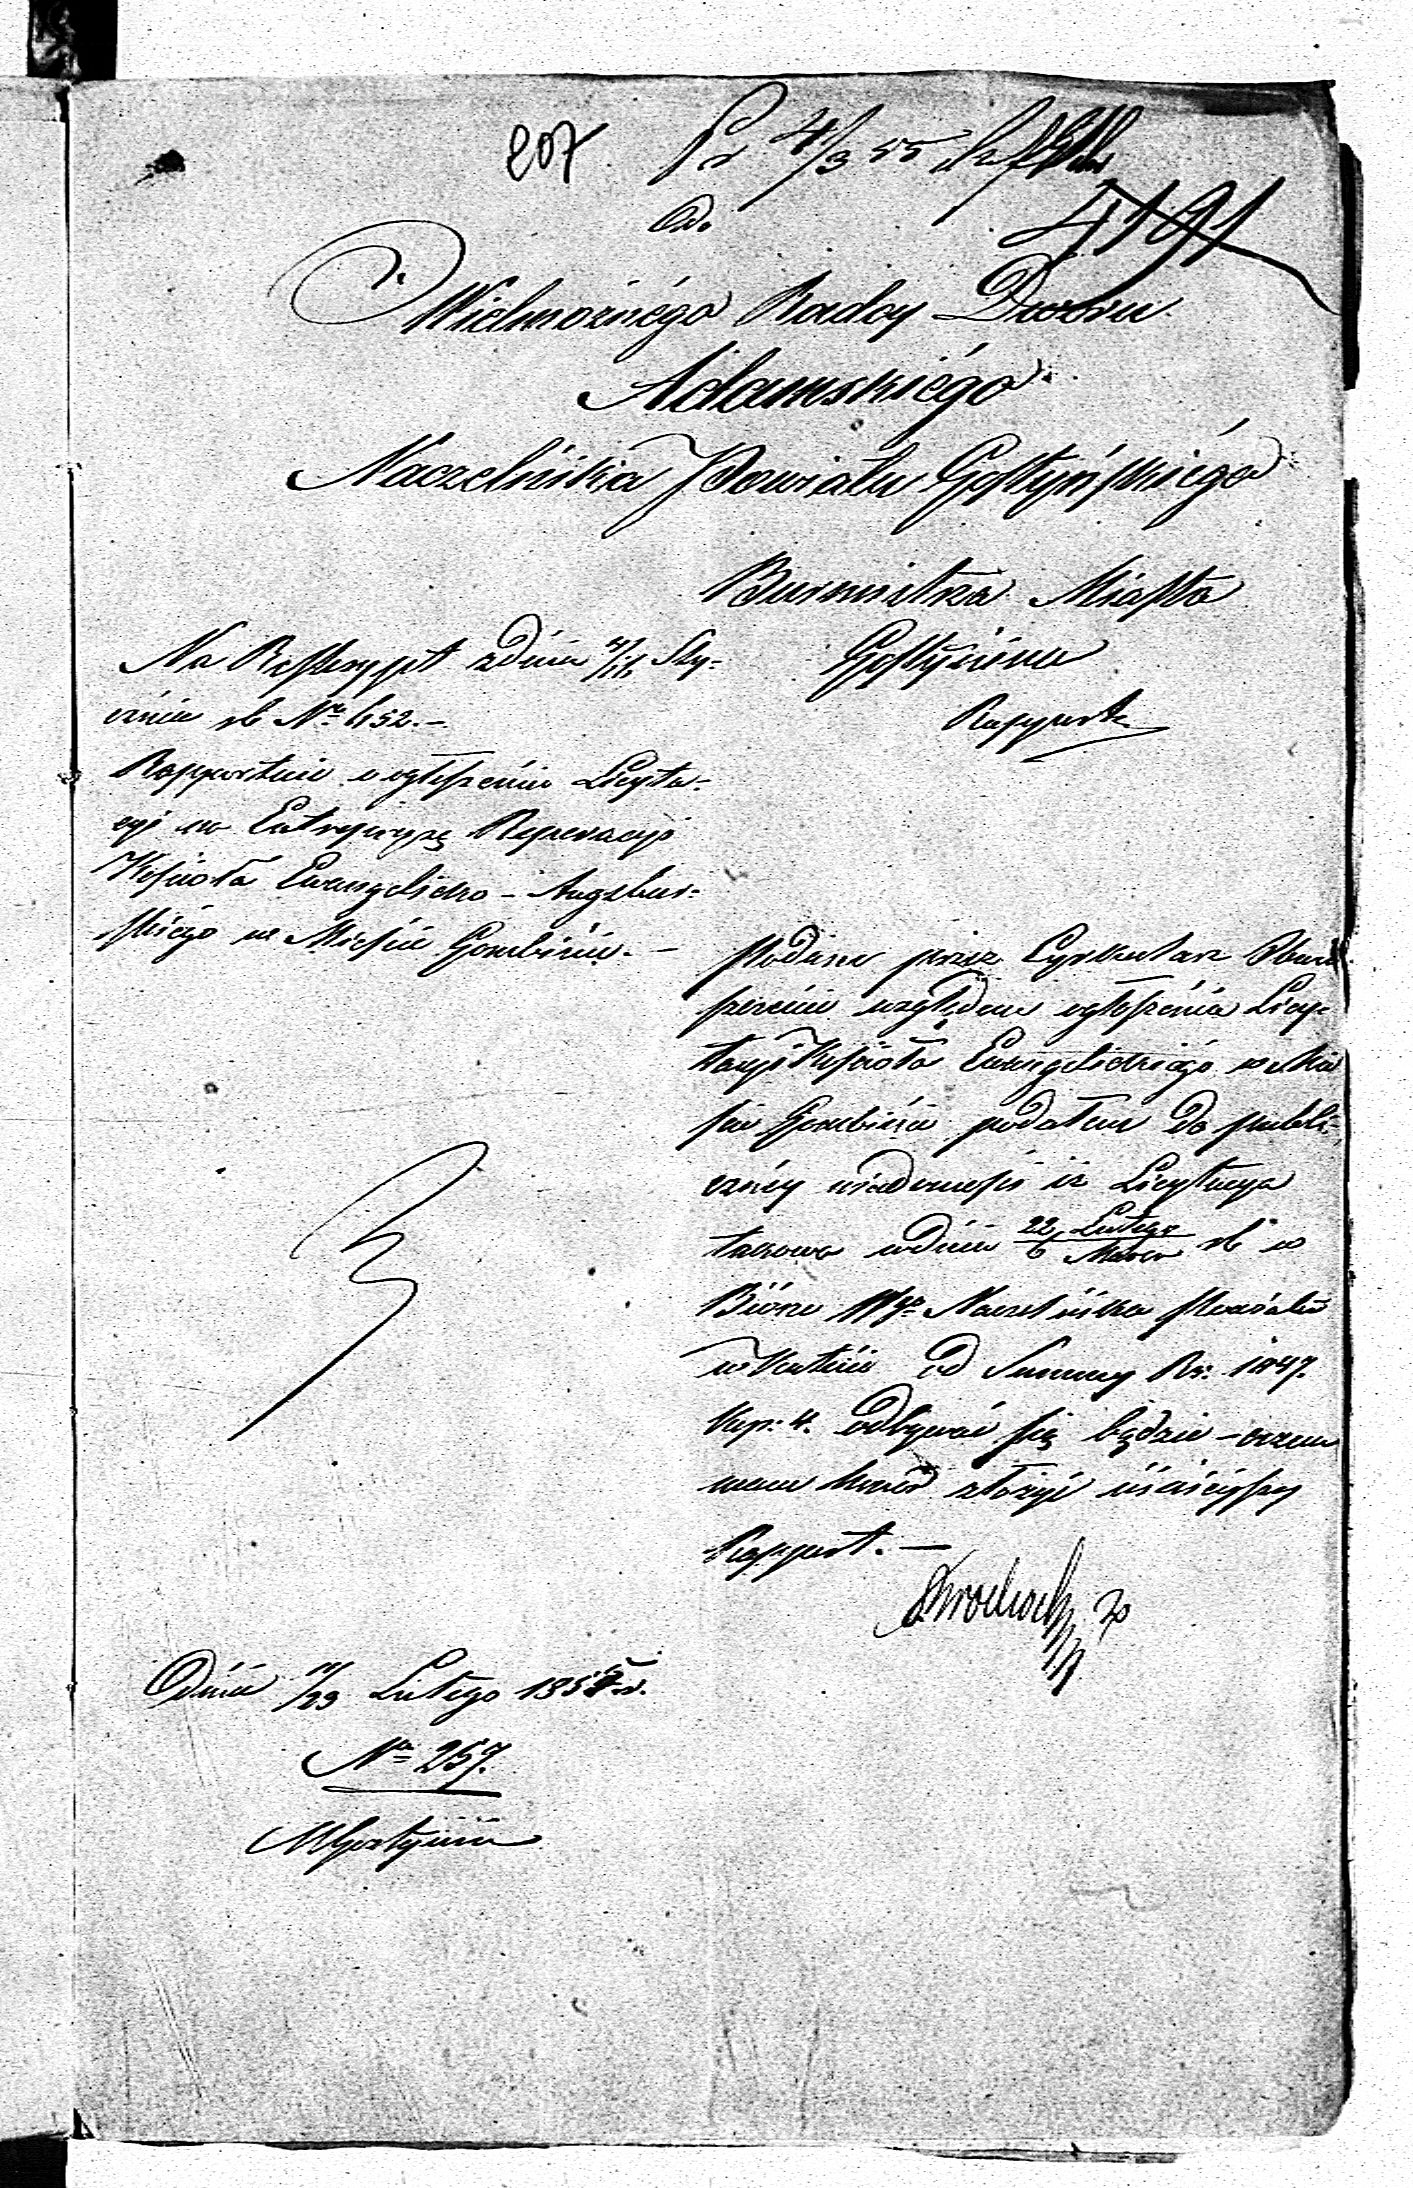 207
Pr 4/3 55
4191
Do
Wielmożnégo Radcy Dworu
Adamskiégo
Naczelnika Powiatu Gostyńskiégo
Burmistrza Miasta
Gostynina
Rapport
Na Reskrypt z dnia 4/16 Sty-
cznia rb Nr 652.-
Rapportuie o ogłoszeniu Licyta-
cyi na Entrepryzę Reperacyi
Kościoła Ewangelicko - Augsbur-
skiégo w Mieście Gombinie. -
Podane przez Cyrkularz Obwie-
szczenie względem ogłoszenia Licy-
tacyi Kościoła Ewangelickiégo w Mie
ście Gombinie podałem do publi-
cznéy wiadomości iż Licytacya
takowa w dniu 22 Lutego / 6 Marca rb w
Biórze Wgo Naczelnika Powiatu
w Kutnie od Summy Rs. 1847.
Kop: 4. odbywać się będzie - o czem
mam honor złożyć ninieyszy
Rapport. -
Dnia 11/23 Lutego 1855 r.
Nr 257.
w Gostyninie